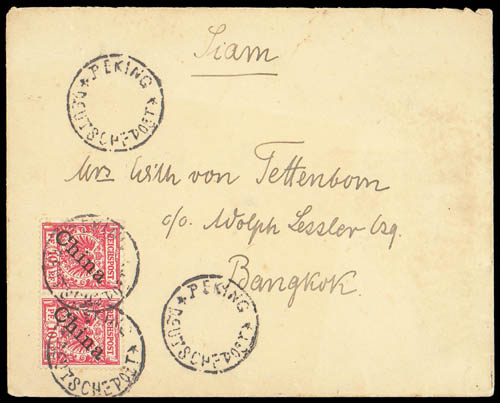 Siam
* PEKING *
DEUTSCHE POST
Mrs With von Tettenborn
c/o. Adolph Lessler Esq.
Bangkok.
REICHSPOST
China
10
REICHSPOST
China
10
DEUTSCHE POST *
* PEKING *
DEUTSCHE POST